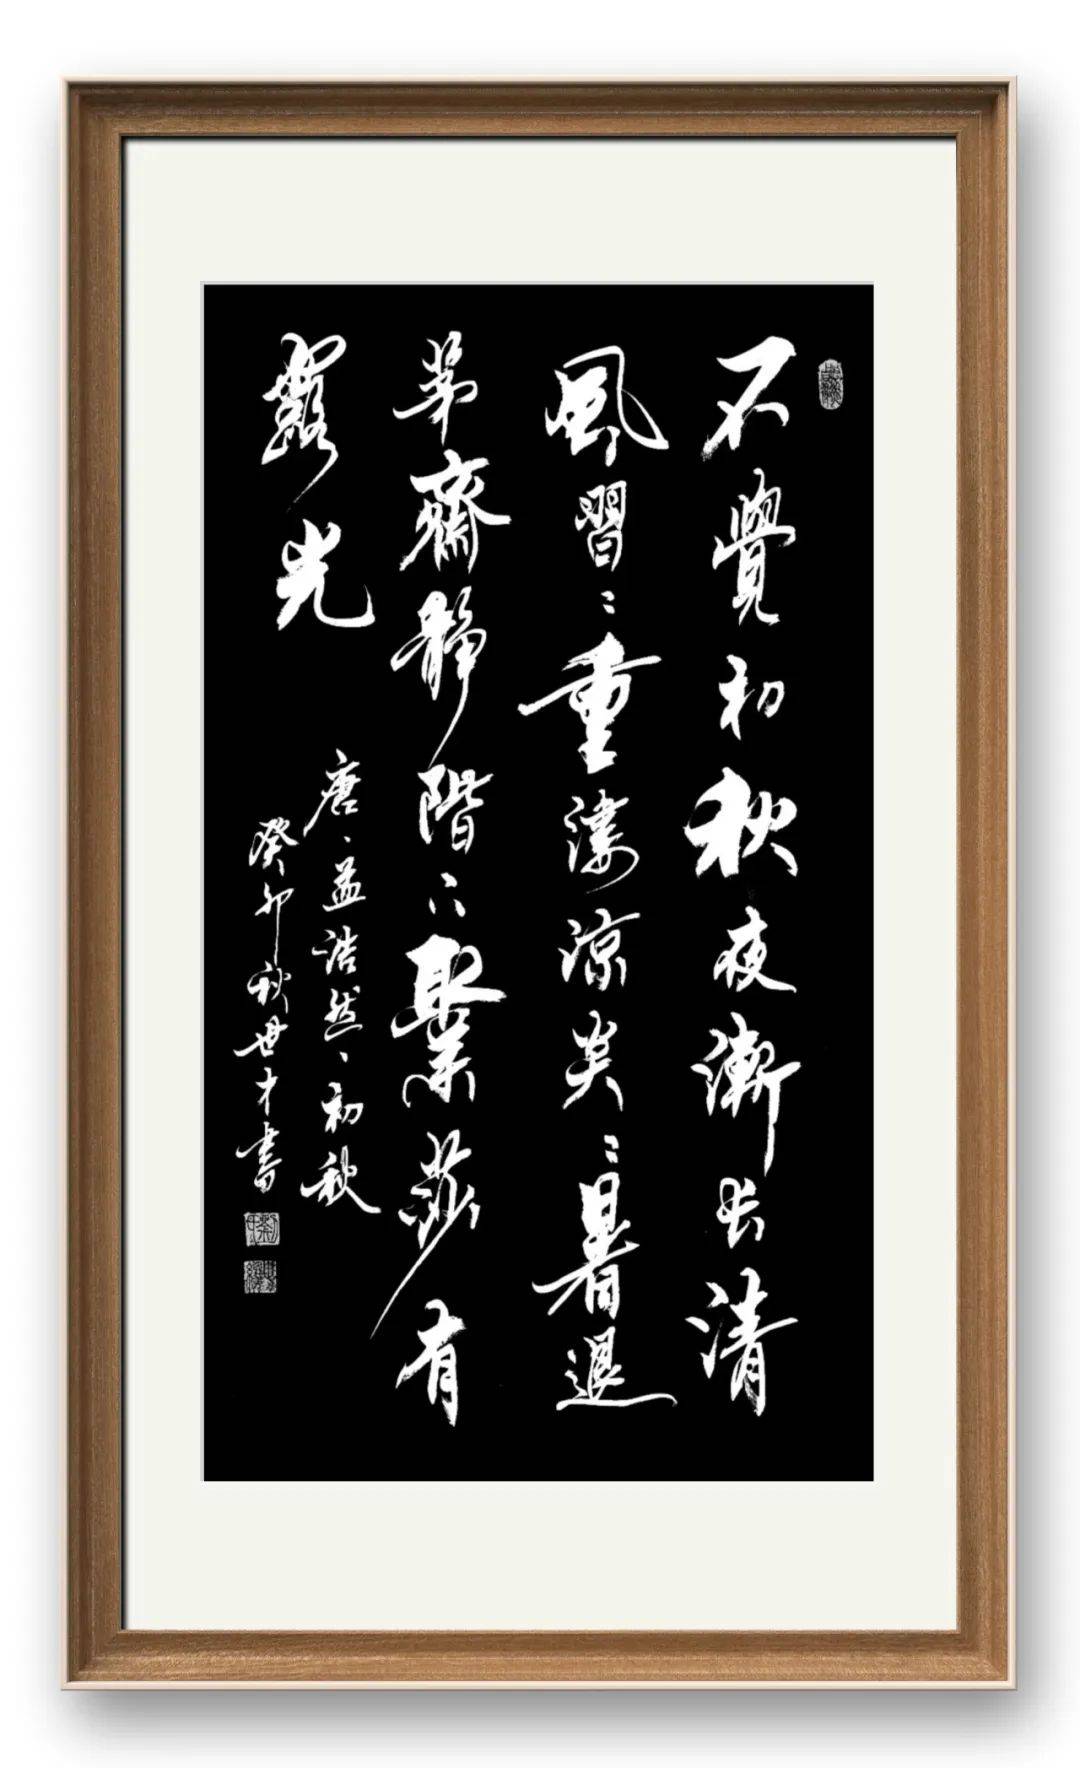 不覺初秋夜漸長清
風習〻重淒涼炎〻暑退
茅齋靜階下聚莎有
露光
唐、孟浩然、初秋
癸卯秋世才書